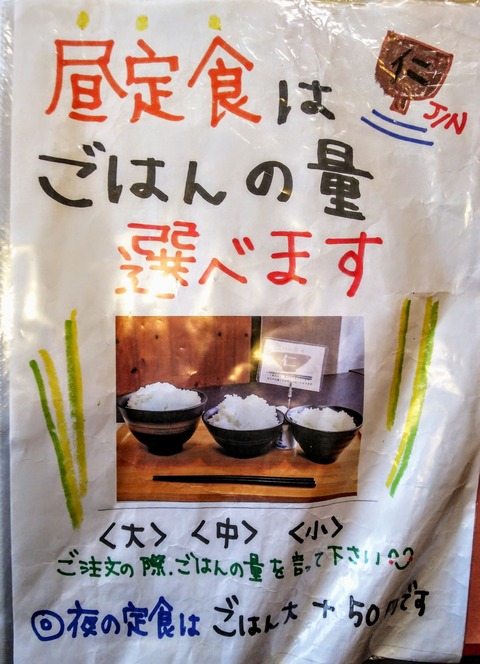 昼定食は
仁
JIN
ごはんの量
選べます
仁
<大> <中> <小>
ご注文の際、ごはんの量を言って下さい
◎夜の定食は ごはん大 +50円です